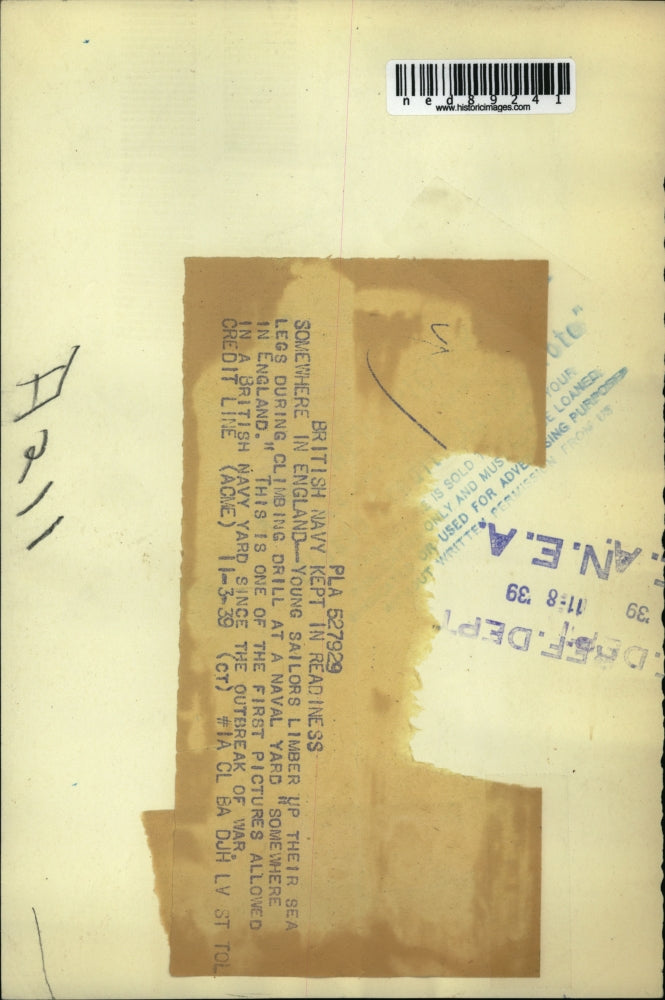 ned89241
www.historicimages.com
PLA 527929
BRITISH NAVY KEPT IN READINESS
SOMEWHERE IN ENGLAND--YOUNG SAILORS LIMBER UP THEIR SEA
LEGS DURING CLIMBING DRILL AT A NAVAL YARD "SOMEWHERE
IN ENGLAND." THIS IS ONE OF THE FIRST PICTURES ALLOWED
IN A BRITISH NAVY YARD SINCE THE OUTBREAK OF WAR.
CREDIT LINE (ACME) 11-3-39 (CT) #1A CL BA DJH LV ST TOL
YOUR
E LOANED
IS SOLD
ONLY AND MUS
SING PURPOSES
USED FOR ADVE
FROM US
UT WRITTEN PERMISSION
N.E.A.
11 8 '39
39
REF. DEPT.